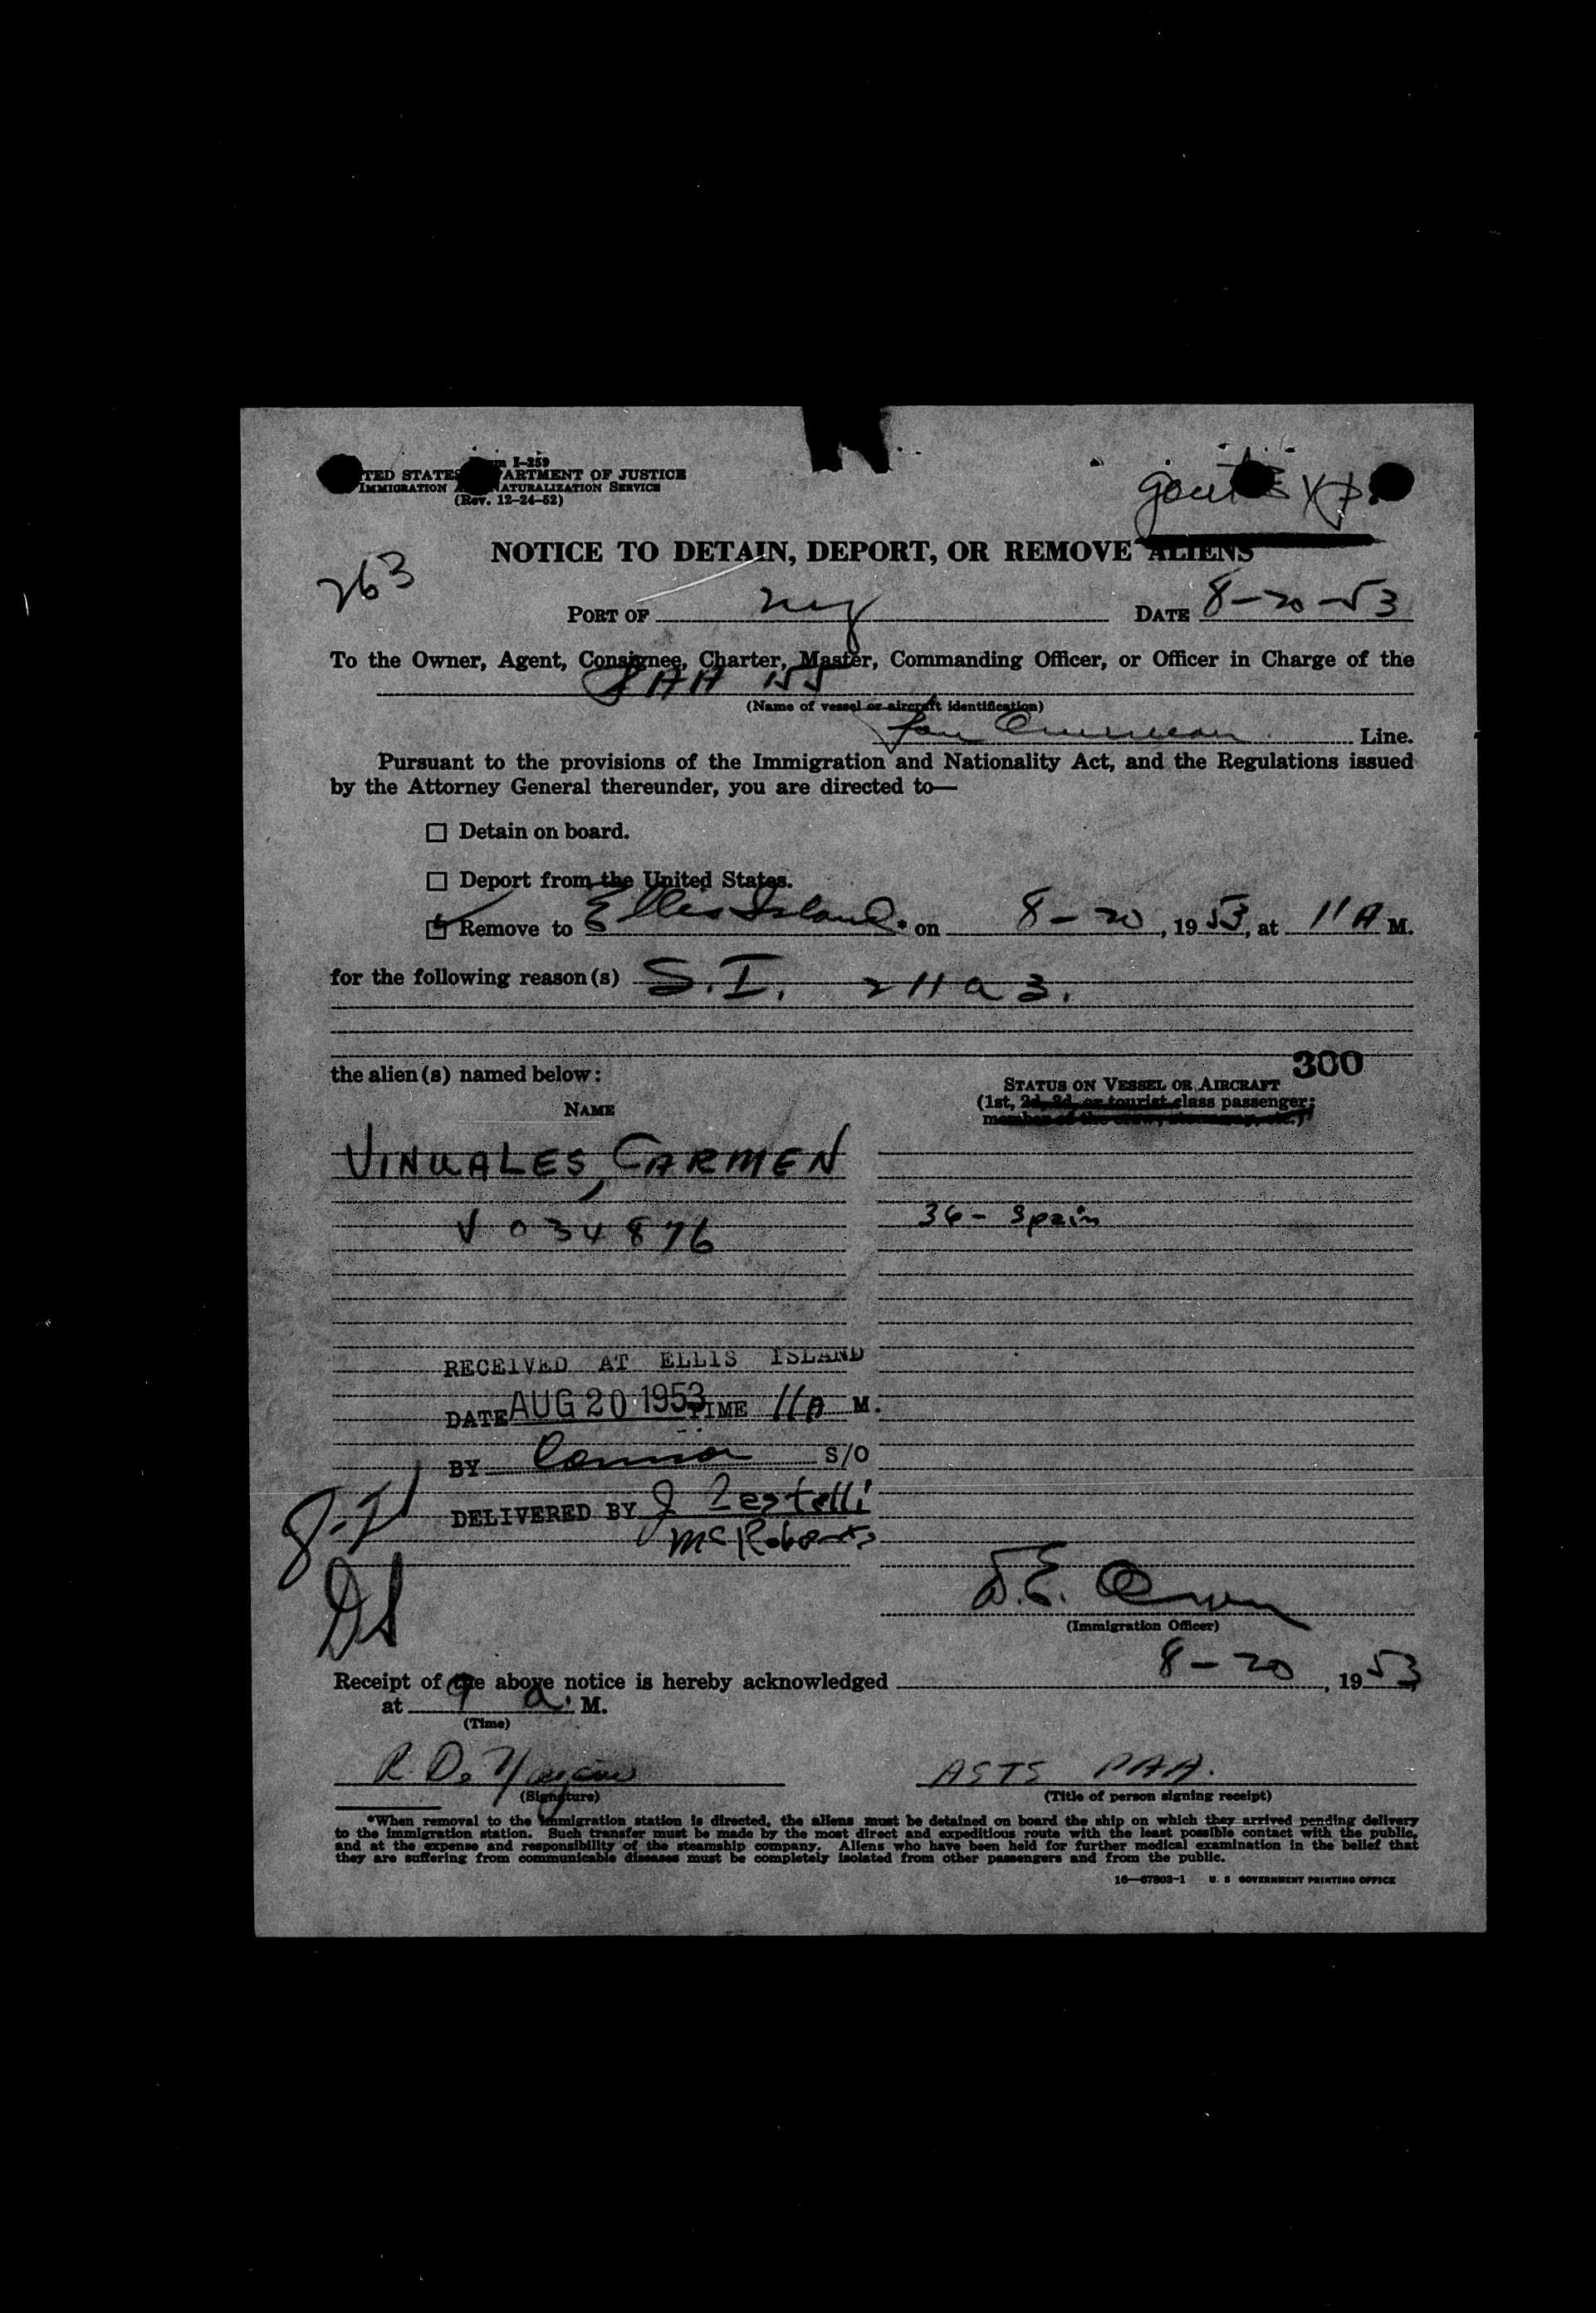 Form I-259
UNITED STATES DEPARTMENT OF JUSTICE
IMMIGRATION AND NATURALIZATION SERVICE
(Rev. 12-24-52)
NOTICE TO DETAIN, DEPORT, OR REMOVE ALIENS
263
PORT OF NY DATE 8-20-53
To the Owner, Agent, Consignee, Charter, Master, Commanding Officer, or Officer in Charge of the
PAA 155
(Name of vessel or aircraft identification)
Pan American Line.
Pursuant to the provisions of the Immigration and Nationality Act, and the Regulations issued
by the Attorney General thereunder, you are directed to—
☐ Detain on board.
☐ Deport from the United States.
☑ Remove to Ellis Island * on 8-20, 1953, at 11 A M.
for the following reason(s) S.I. 211 a 3.
300
the alien(s) named below:
STATUS ON VESSEL OR AIRCRAFT
NAME
(1st, 2d, 3d, or tourist class passenger;
member of the crew, etc.)
VINUALES, CARMEN
V 034876
36 - Spain
RECEIVED AT ELLIS ISLAND
DATE AUG 20 1953 TIME 11 A M.
BY Connor S/O
DELIVERED BY J Zestelli
McRoberts
(Immigration Officer)
Receipt of the above notice is hereby acknowledged 8-20, 1953
at 9 a. M.
(Time)
R. De
ASTS PAA.
(Signature)
(Title of person signing receipt)
*When removal to the immigration station is directed, the aliens must be detained on board the ship on which they arrived pending delivery
to the immigration station. Such transfer must be made by the most direct and expeditious route with the least possible contact with the public,
and at the expense and responsibility of the steamship company. Aliens who have been held for further medical examination in the belief that
they are suffering from communicable diseases must be completely isolated from other passengers and from the public.
16—67803-1 U. S. GOVERNMENT PRINTING OFFICE